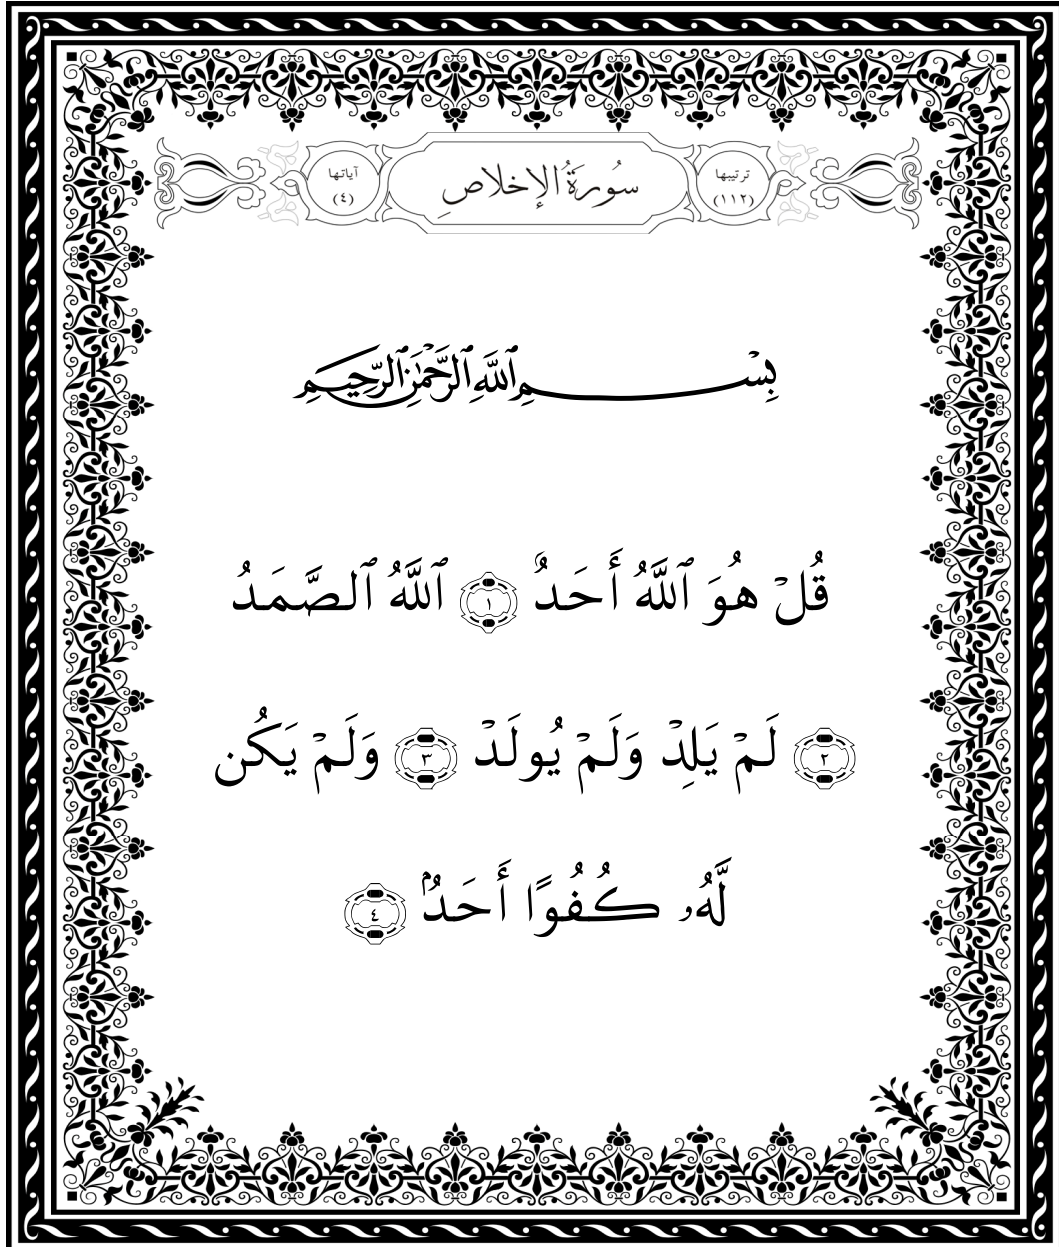 ترتيبها
(١١٢)
سُورَةُ الإِخلاصِ
آياتها
(٤)
بِسْمِ ٱللَّهِ ٱلرَّحْمَٰنِ ٱلرَّحِيمِ
قُلْ هُوَ ٱللَّهُ أَحَدٌ ١ ٱللَّهُ ٱلصَّمَدُ
٢ لَمْ يَلِدْ وَلَمْ يُولَدْ ٣ وَلَمْ يَكُن
لَّهُۥ كُفُوًا أَحَدٌۢ ٤